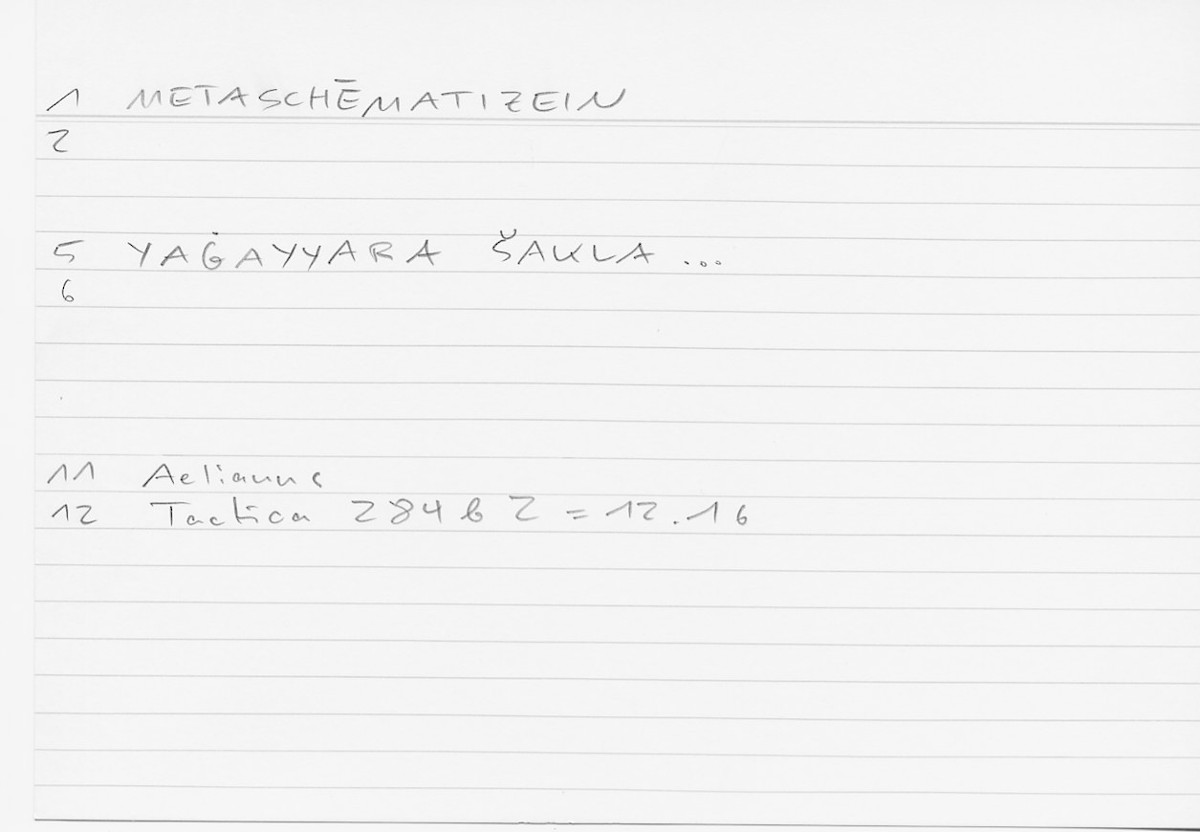 1 METASCHĒMATIZEIN
2
5 YAĠAYYARA ŠAKLA ...
6
11 Aelianus
12 Tactica 284 b 2 = 12.16